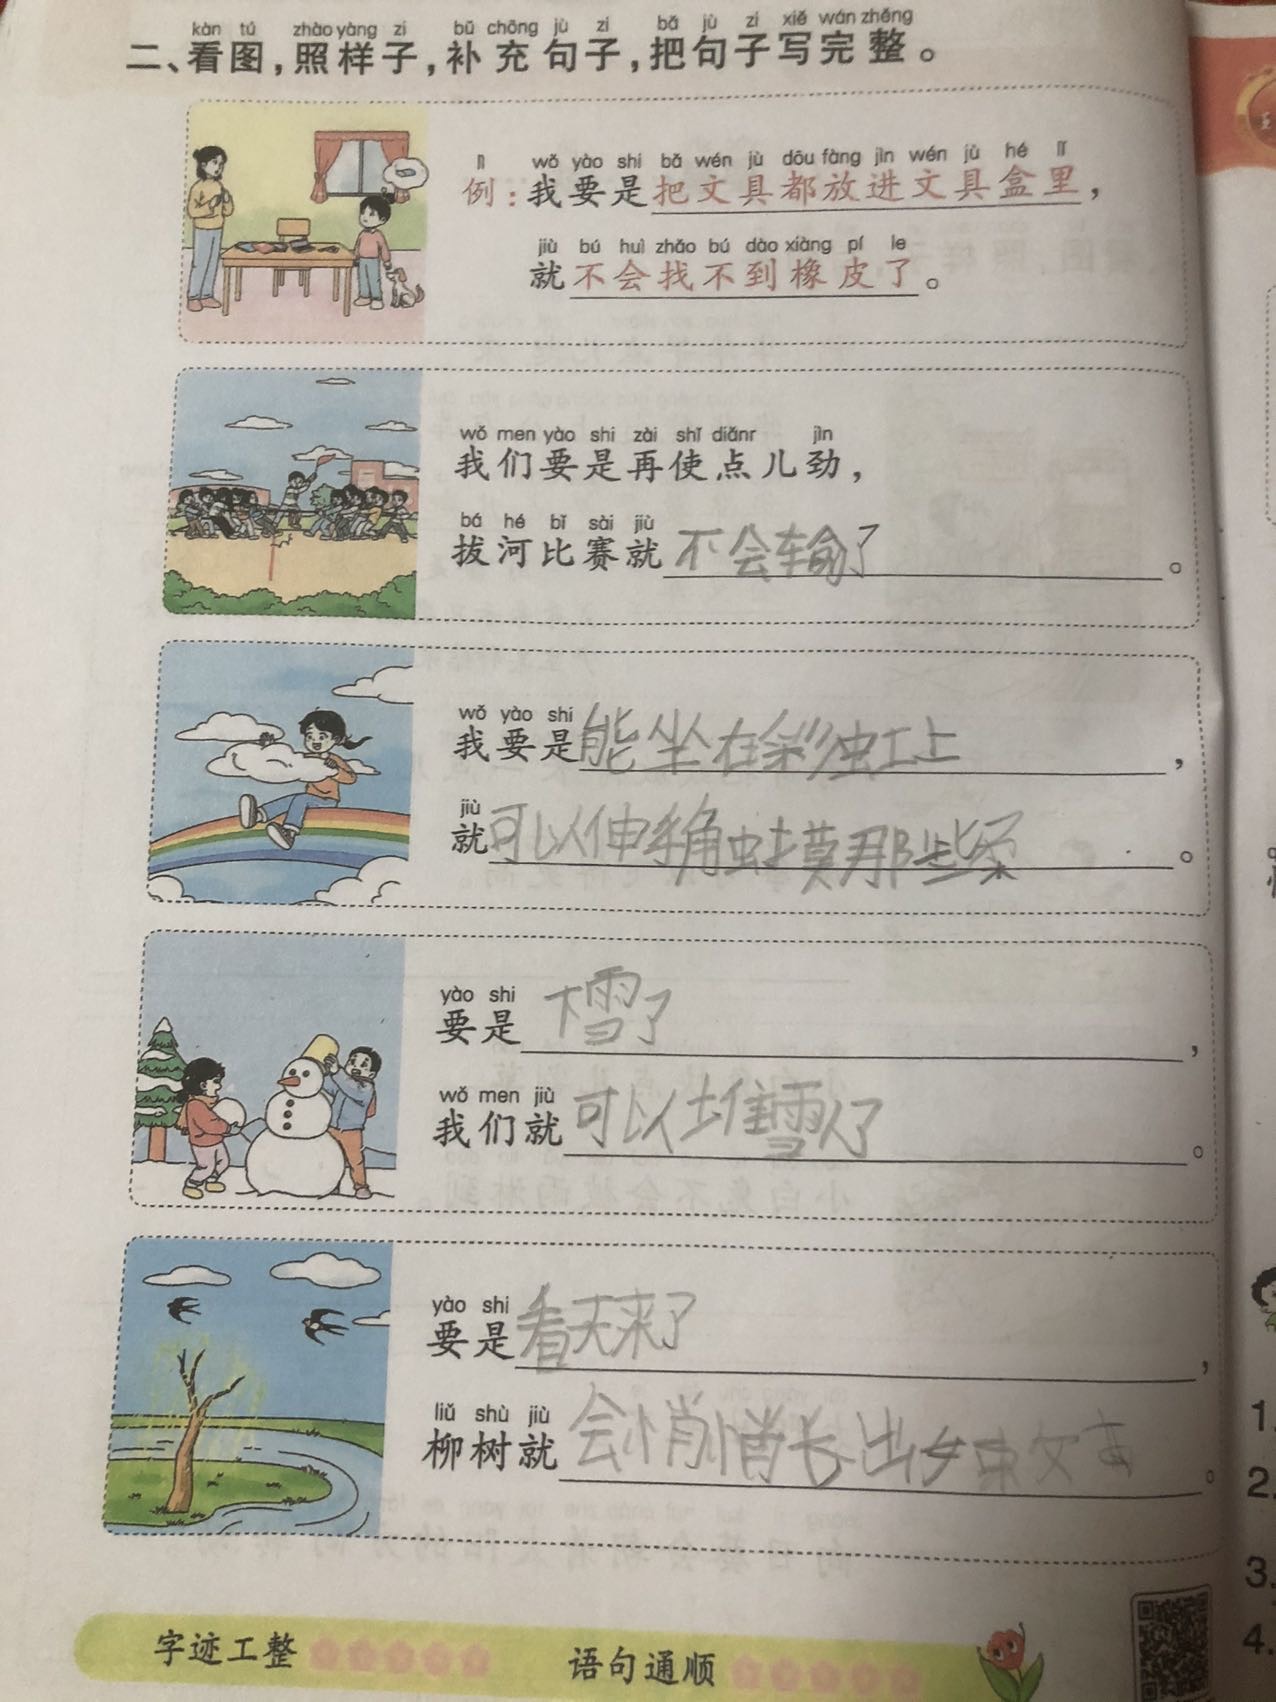 kàn tú zhào yàng zi bǔ chōng jù zi bǎ jù zi xiě wán zhěng
二、看图，照样子，补充句子，把句子写完整。
lì wǒ yào shi bǎ wén jù dōu fàng jìn wén jù hé lǐ
例：我要是把文具都放进文具盒里，
jiù bú huì zhǎo bú dào xiàng pí le
就不会找不到橡皮了。
wǒ men yào shi zài shǐ diǎnr jìn
我们要是再使点儿劲，
bá hé bǐ sài jiù
拔河比赛就不会输了。
wǒ yào shi
我要是能坐在彩虹上，
jiù
就可以伸手触摸那些云。
yào shi
要是下雪了，
wǒ men jiù
我们就可以堆雪人了。
yào shi
要是看天来了，
liǔ shù jiù
柳树就会悄悄长出。
字迹工整
语句通顺
1.
2.
3.
4.